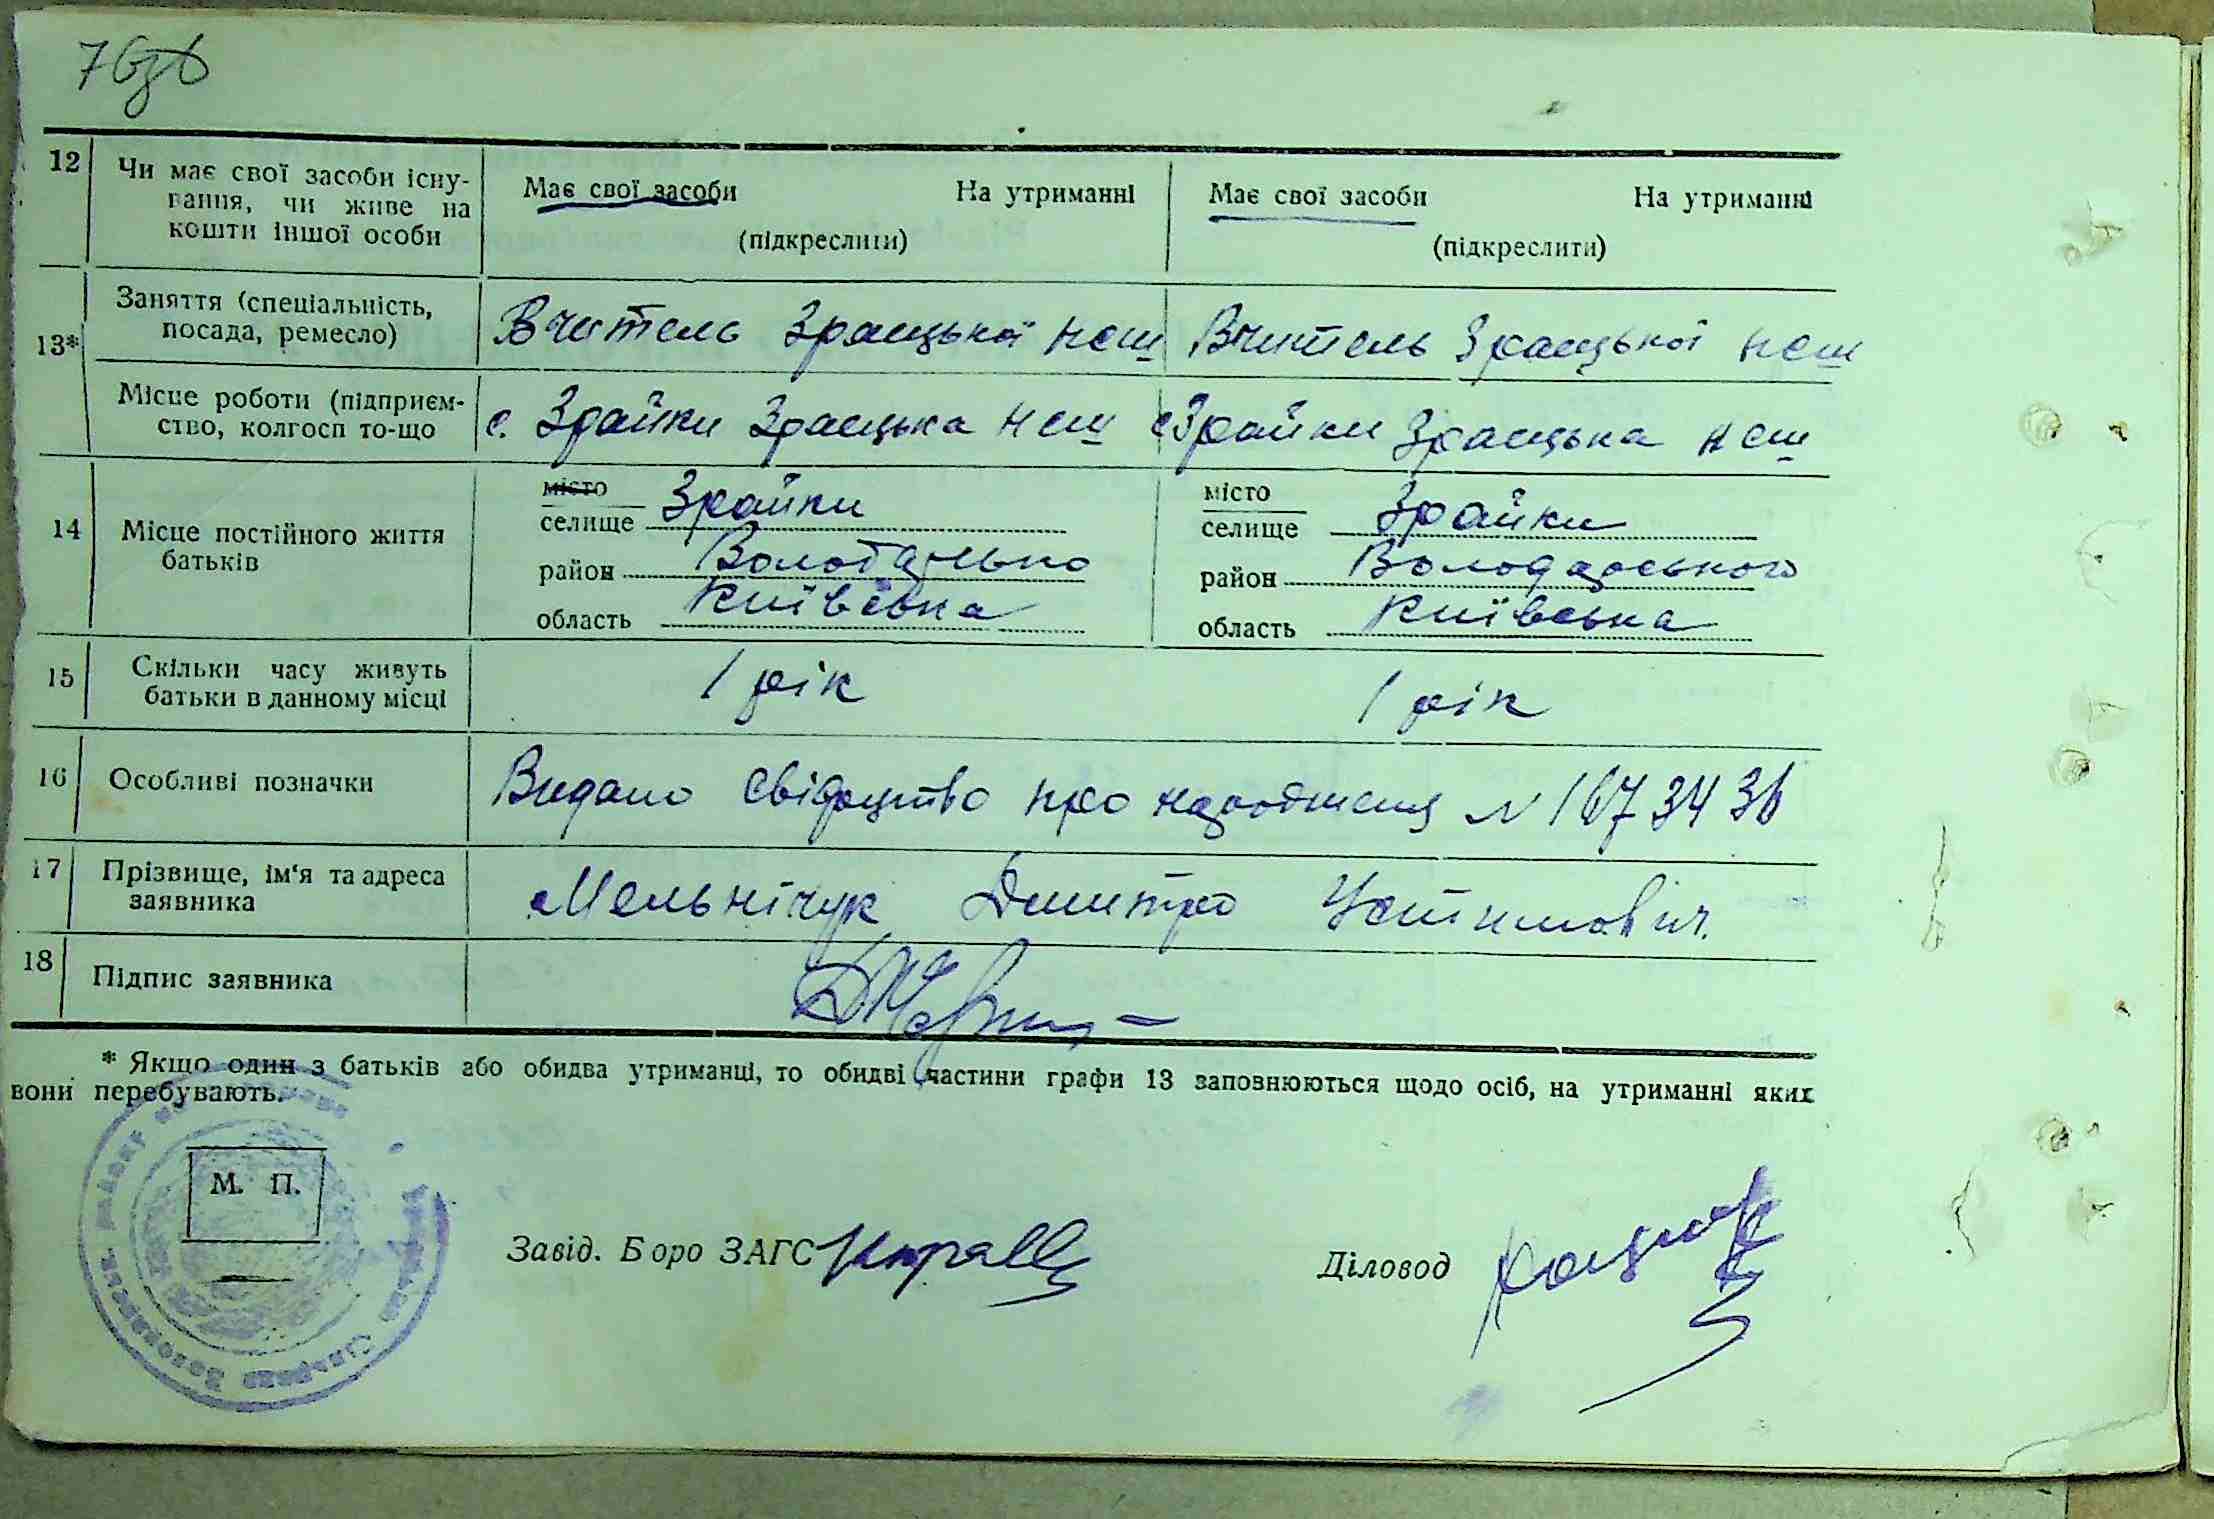 12 Чи має свої засоби існу-
вання, чи живе на
кошти іншої особи
Має свої засоби На утриманні
(підкреслити)
Має свої засоби На утриманні
(підкреслити)
13* Заняття (спеціальність,
посада, ремесло)
Вчитель Зраицької нсш
Вчитель Зраицької нсш
Місце роботи (підприєм-
ство, колгосп то-що
с. Зрайки Зраицька нсш
с. Зрайки Зраицька нсш
14 Місце постійного життя
батьків
місто
селище Зрайки
район
область Київська
місто
селище Зрайки
район Володарського
область Київська
15 Скільки часу живуть
батьки в данному місці
1 рік
1 рік
16 Особливі позначки
Видано свідоцтво про народження N 1673436
17 Прізвище, ім'я та адреса
заявника
Мельнічук Дмитро Устимович.
18 Підпис заявника
* Якщо один з батьків або обидва утриманці, то обидві частини графи 13 заповнюються щодо осіб, на утриманні яких
вони перебувають.
М. П.
Завід. Боро ЗАГС
Діловод